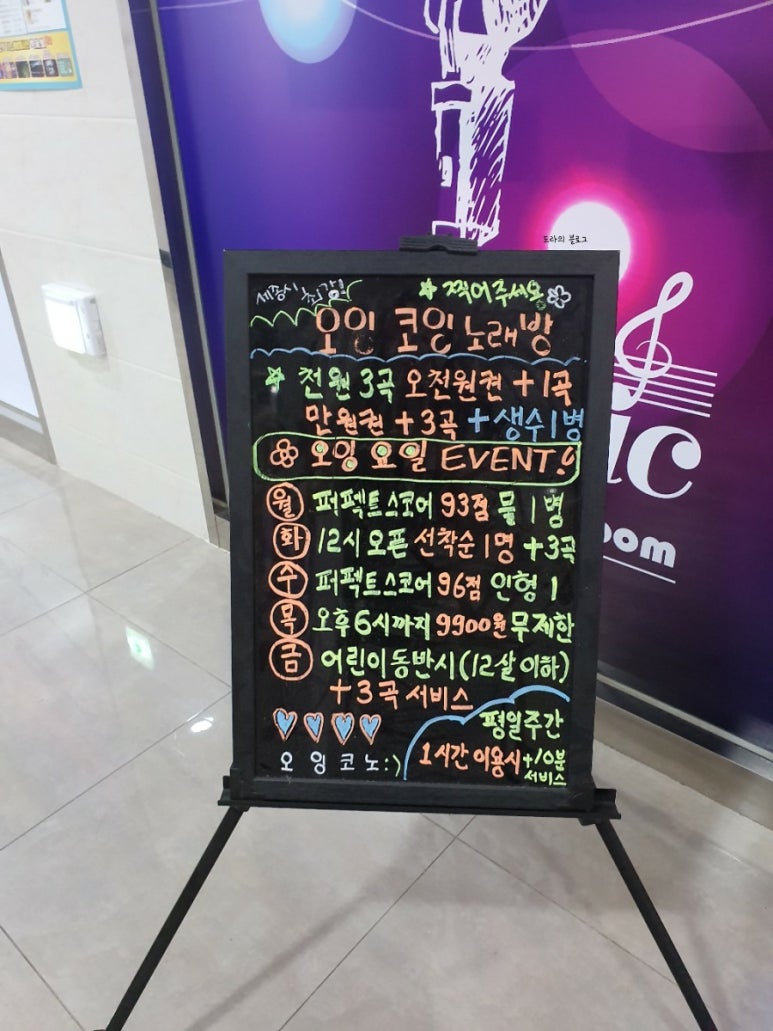 도라의 블로그
세종시 최강!
찍어주세용
오잉 코인 노래방
천원 3곡 오천원권 +1곡
만원권 +3곡 +생수1병
오잉 요일 EVENT!
월 퍼펙트스코어 93점 물 1병
화 12시 오픈 선착순 1명 +3곡
수 퍼펙트스코어 96점 인형 1
목 오후 6시까지 9900원 무제한
금 어린이동반시(12살 이하)
+3곡 서비스
평일주간
1시간 이용시 +10분
서비스
오 잉 코 노 :)
ic
oom